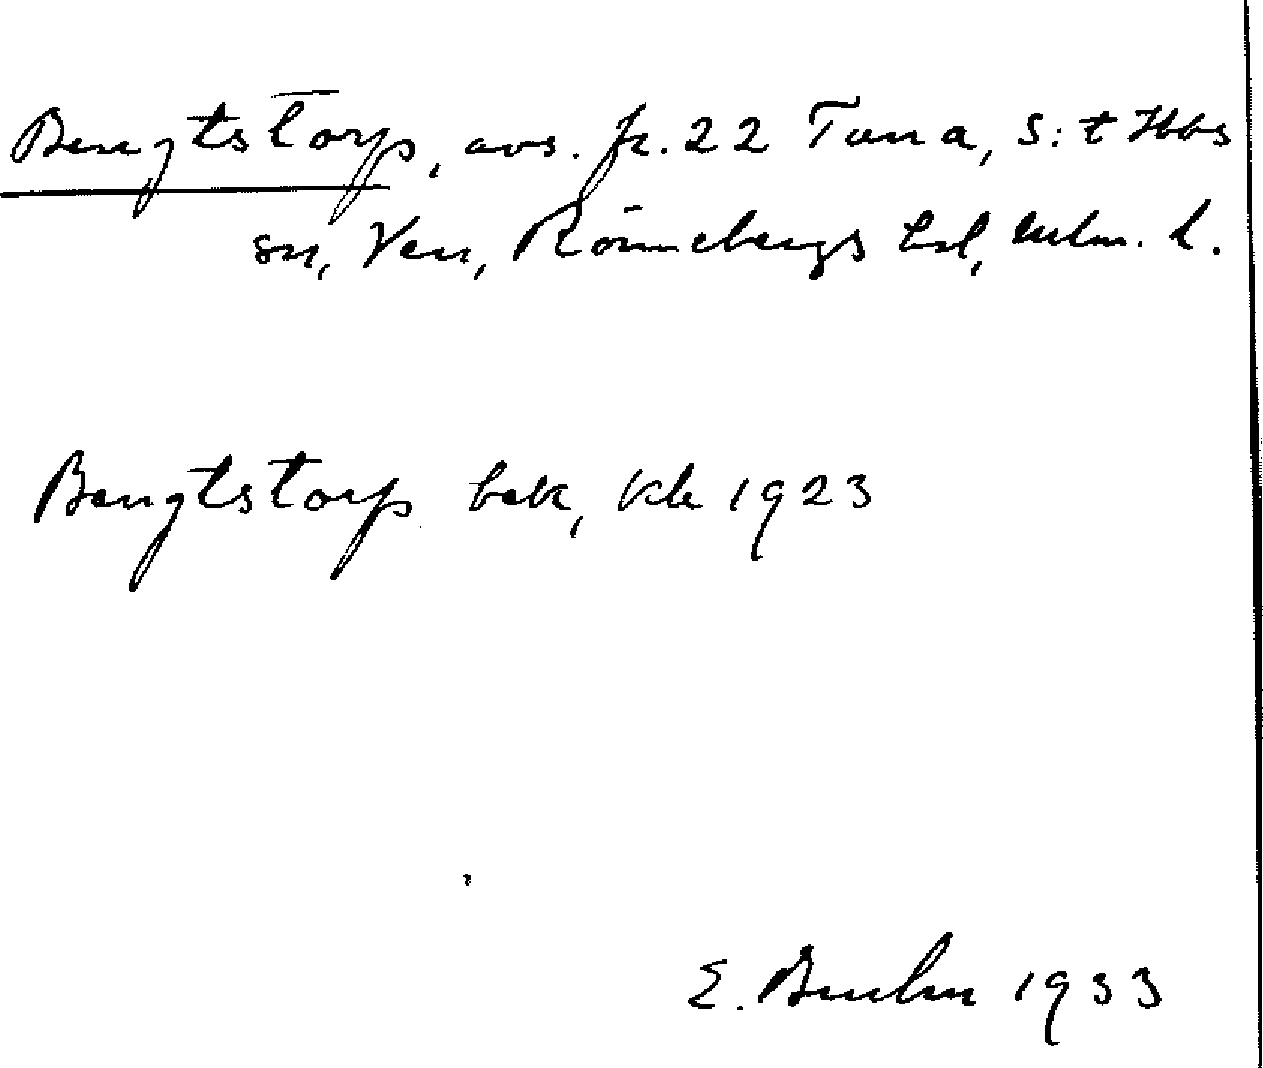 Bengtstorp, avs. fr. 22 Tuna, S:t Ibbs
sn, Ven, Rönnebergs hd, Mlm. l.
Bengtstorp bek, Kb 1923
E. 1933